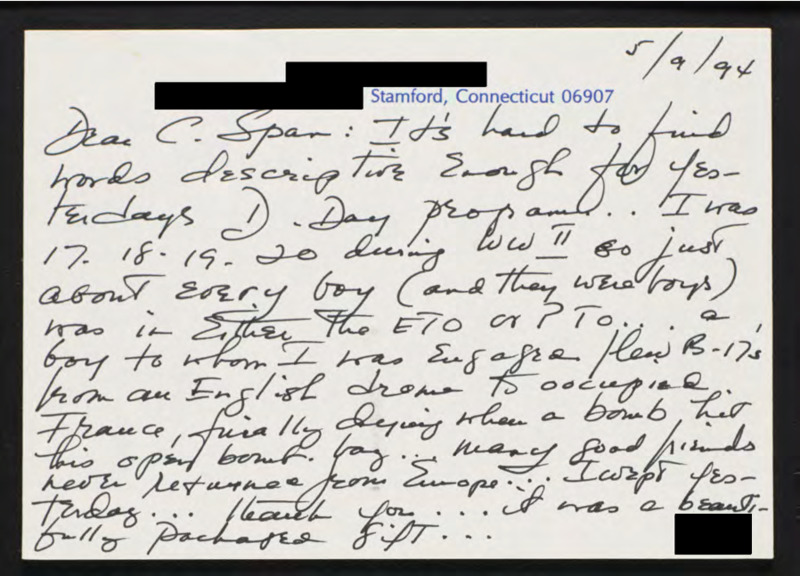 5/9/94
Stamford, Connecticut 06907
Dear C. Span: It's hard to find
words descriptive enough for yes-
terdays D. Day program.. I was
17. 18. 19. 20 during WW II so just
about every boy (and they were boys)
was in Either the ETO or PTO... a
boy to whom I was Engaged flew B-17's
from an English drome to occupied
France, finally dying when a bomb hit
his open bomb. bay... many good friends
never returned from Europe... I wept yes-
terday... thank you... it was a beauti-
fully packaged gift...